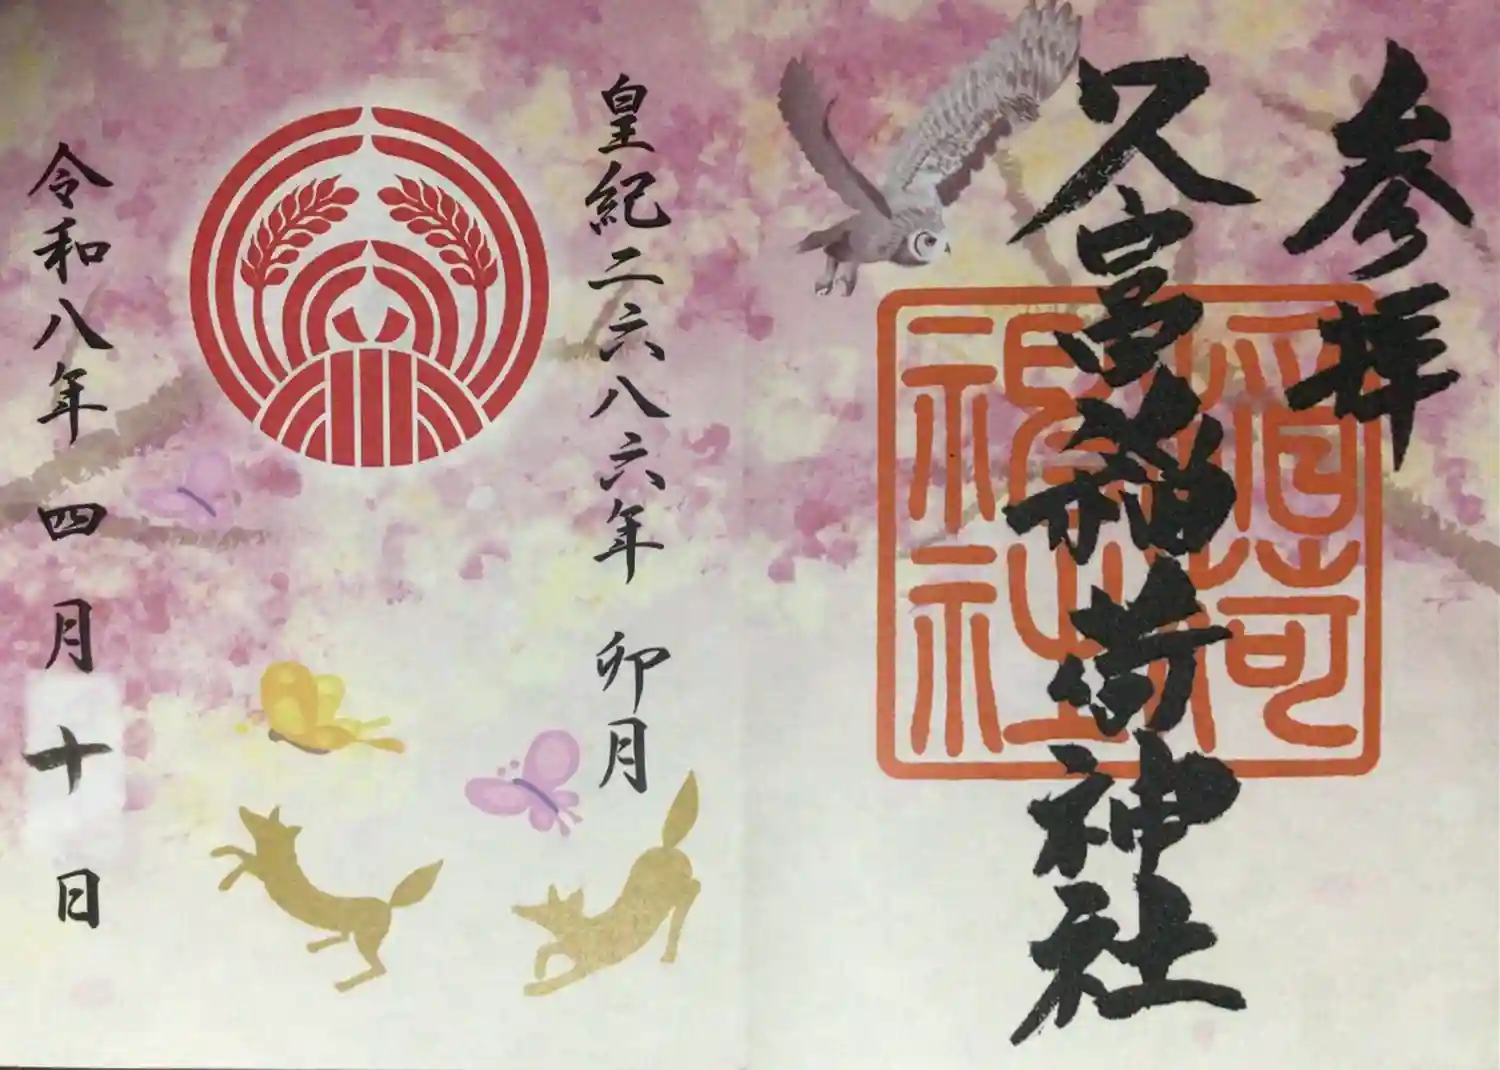 参拝
久富稲荷神社
稲荷
神社
皇紀二六八六年 卯月
令和八年 四月 十 日